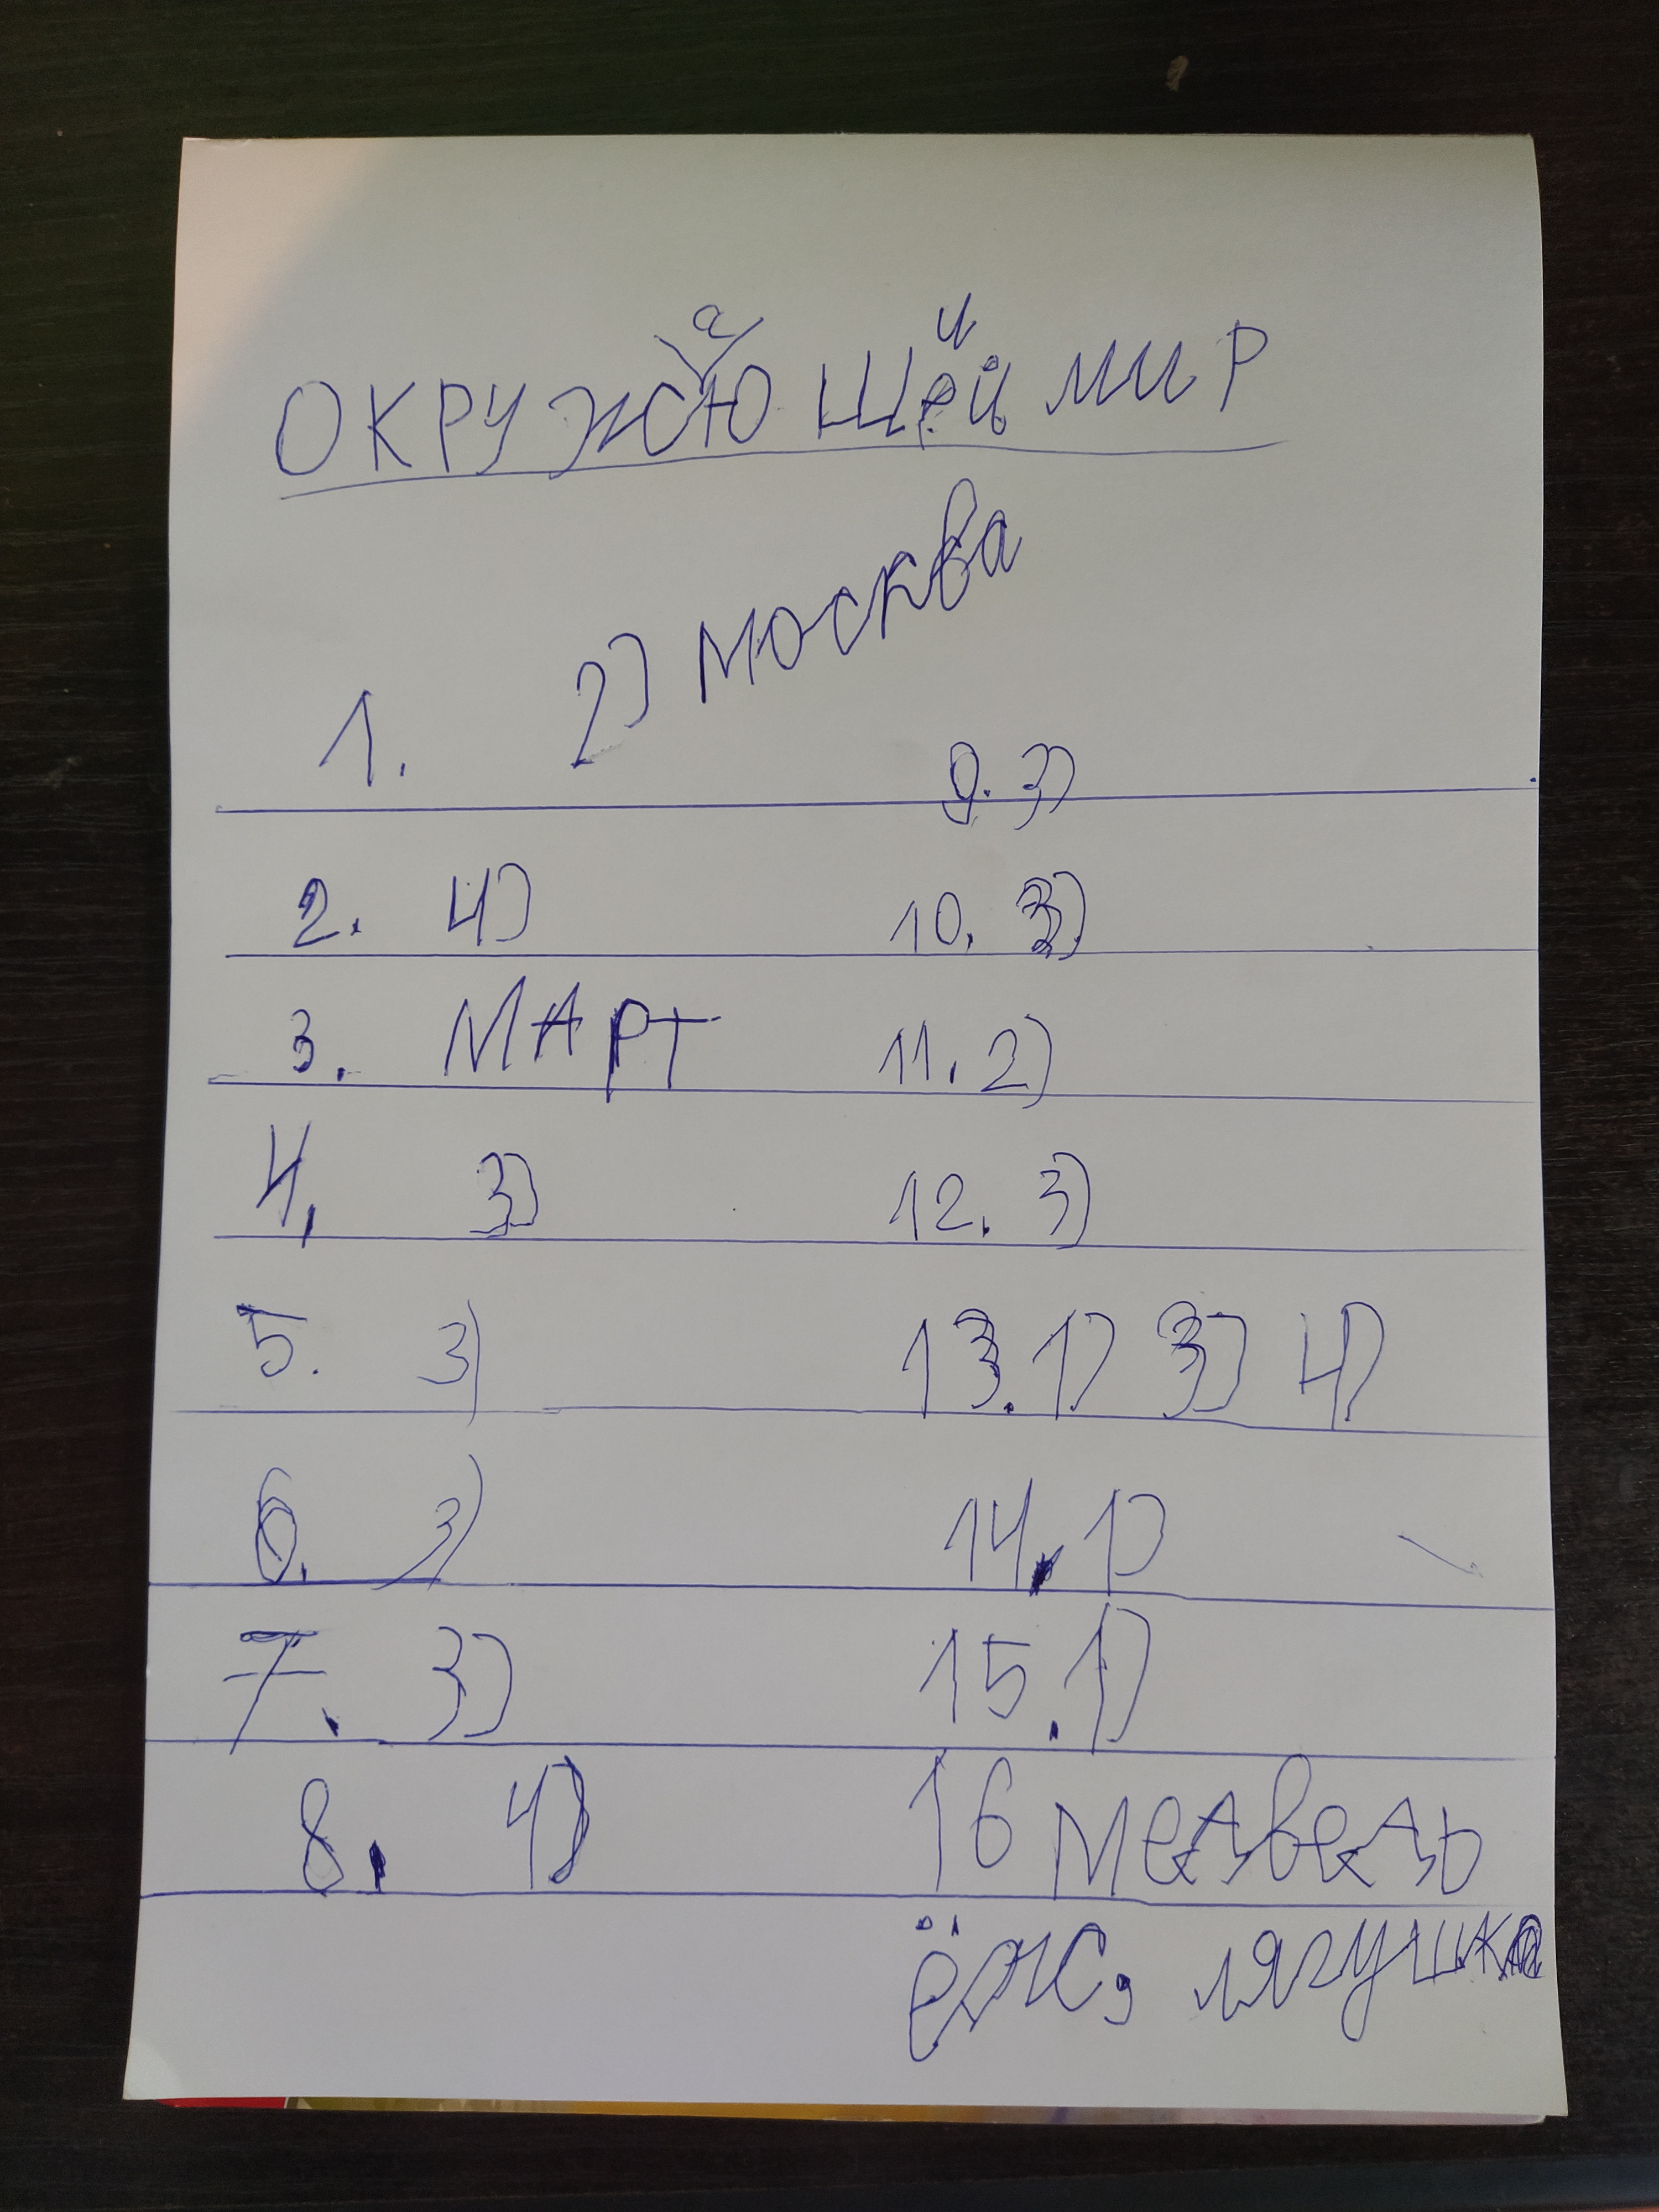 ОКРУЖАЮЩИЙ МИР
1. 2) МОСКВА
9. 3)
2. 4) 10. 3)
3. МАРТ 11. 2)
4. 3) 12. 3)
5. 3) 13. 1) 3) 4)
6. 3) 14. 1)
7. 3) 15. 1)
8. 4) 16 медведь
ёж, лягушка